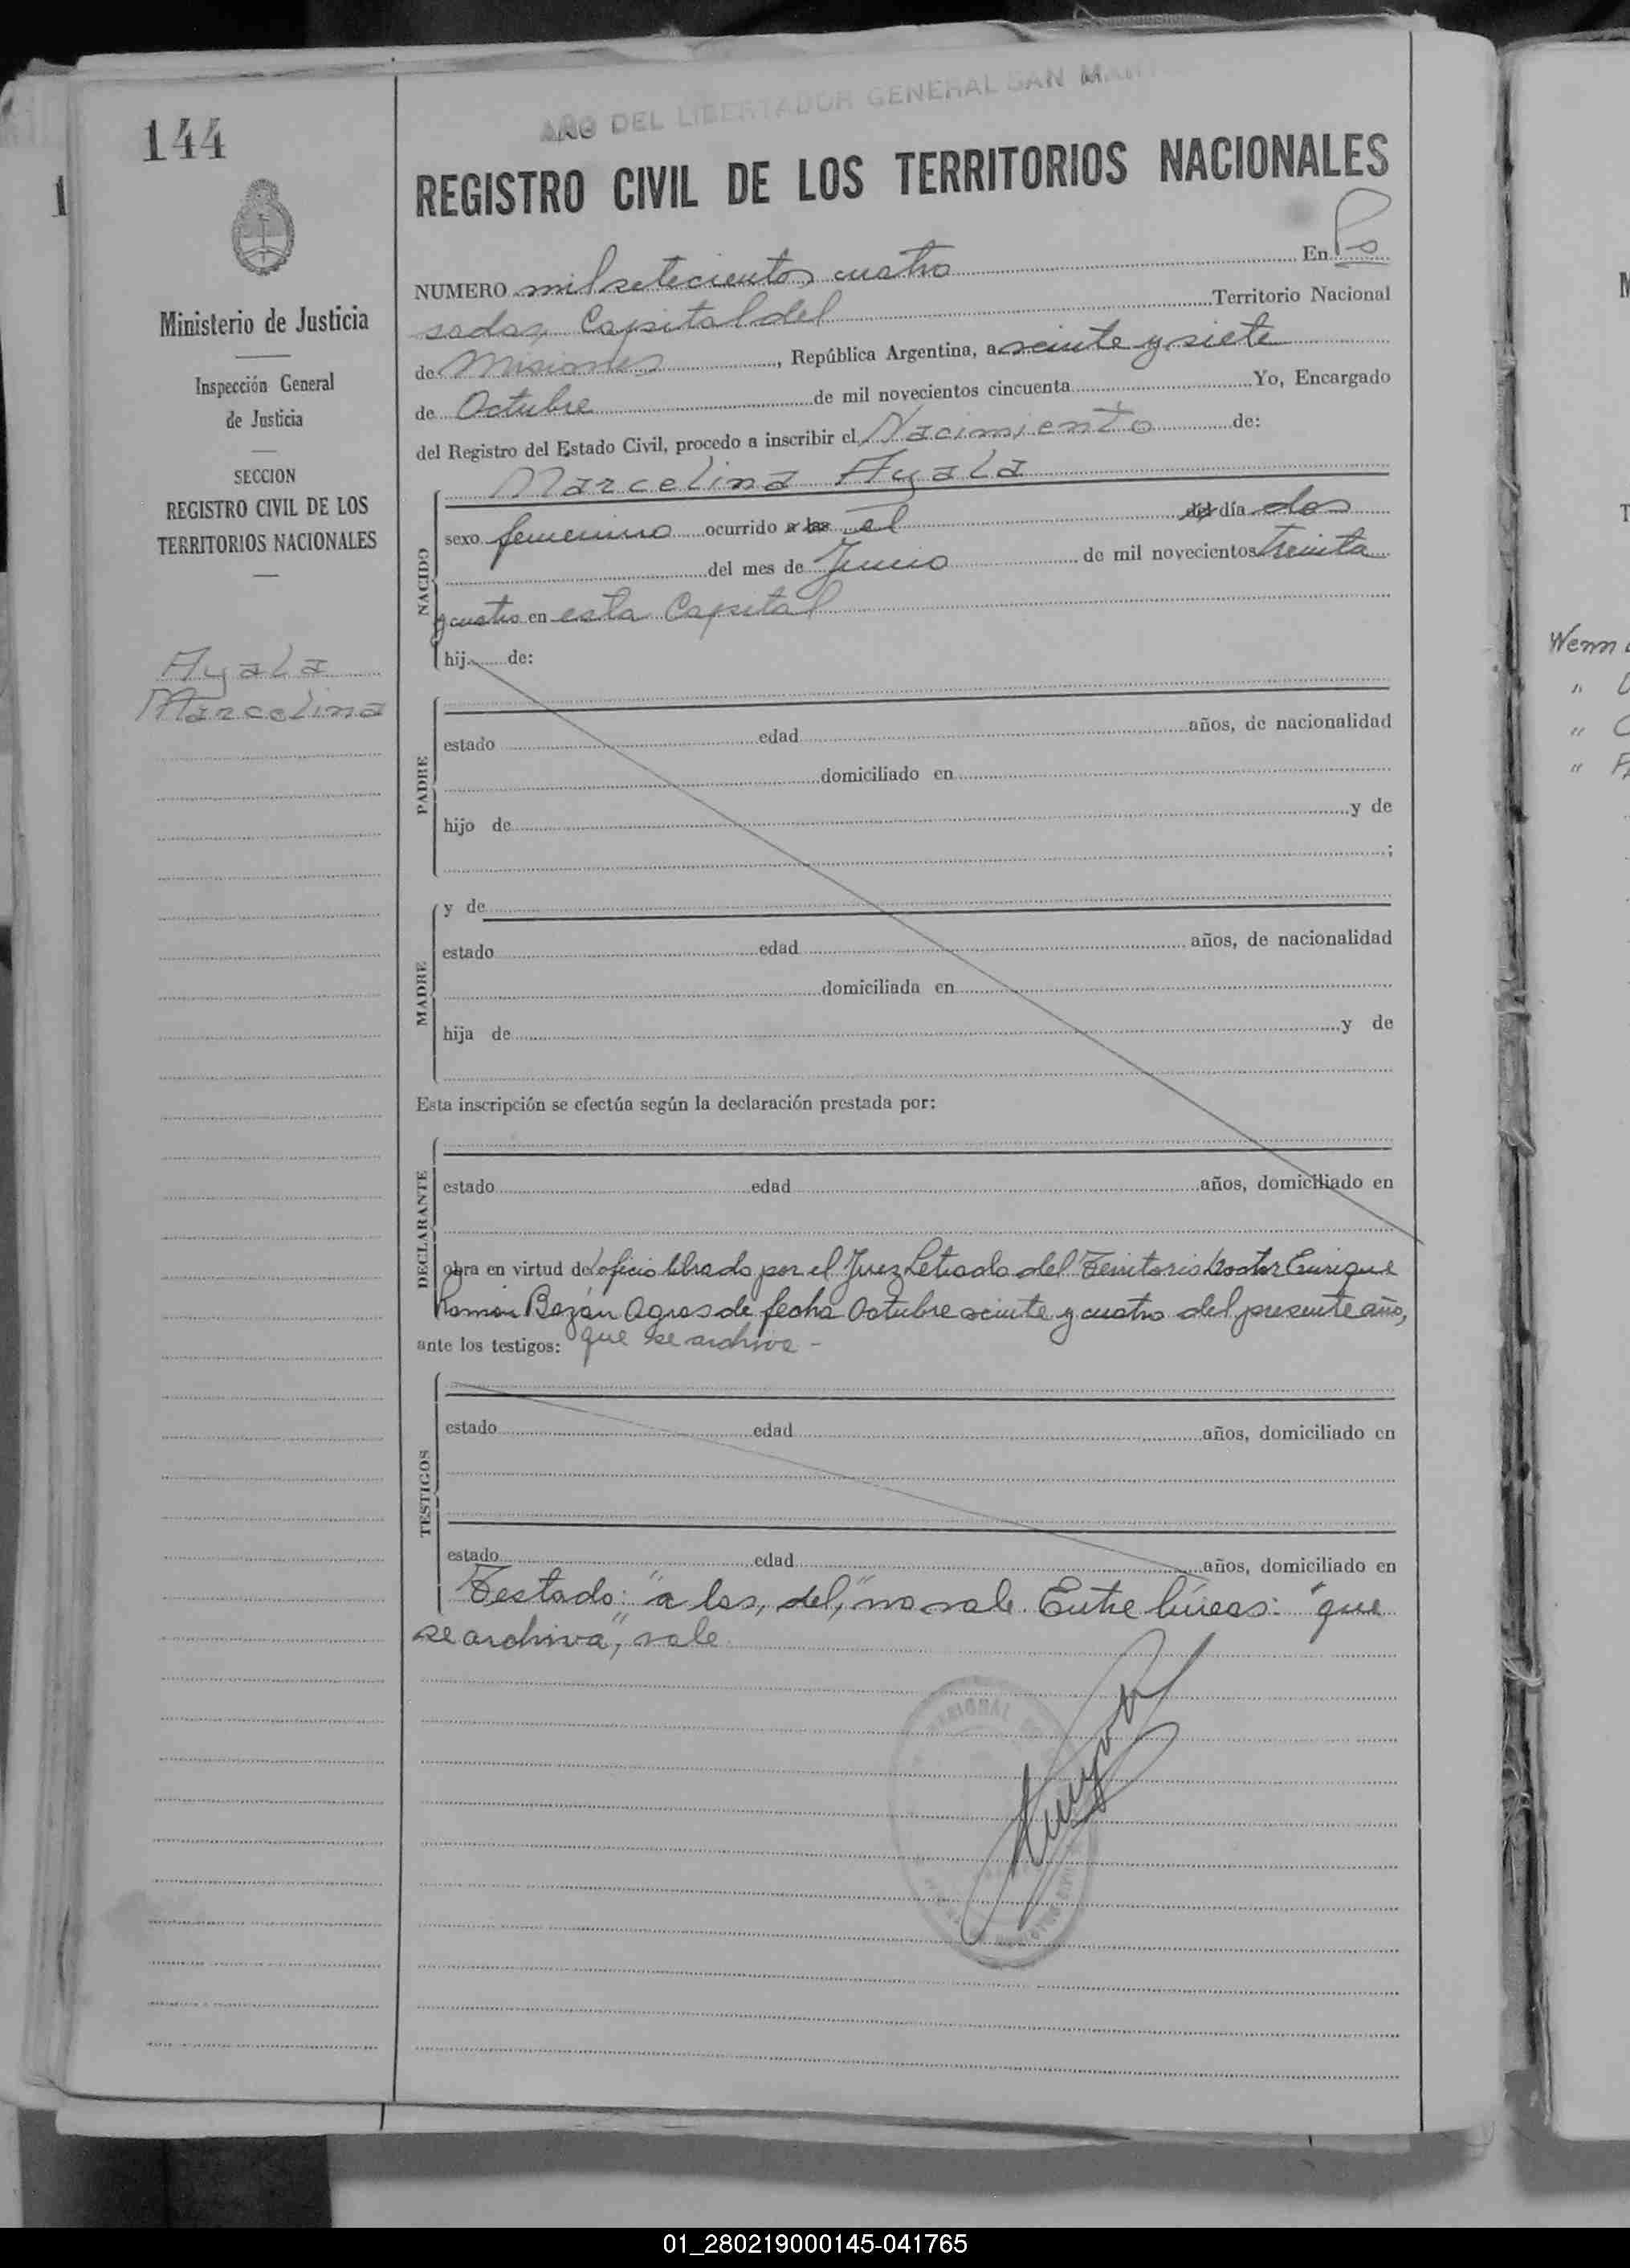 144
AÑO DEL LIBERTADOR GENERAL SAN
REGISTRO CIVIL DE LOS TERRITORIOS NACIONALES
Ministerio de Justicia
Inspección General
de Justicia
SECCION
REGISTRO CIVIL DE LOS
TERRITORIOS NACIONALES
Ayala
Marcelina
NUMERO mil setecientos cuatro En Po
sadas, Capital del Territorio Nacional
de Misiones, República Argentina, a veinte y siete
de Octubre de mil novecientos cincuenta Yo, Encargado
del Registro del Estado Civil, procedo a inscribir el Nacimiento de:
NACIDO
Marcelina Ayala
sexo femenino ocurrido a las el del día dos
del mes de Junio de mil novecientos treinta
y cuatro en esta Capital
hij de:
PADRE
estado edad años, de nacionalidad
domiciliado en
hijo de y de
;
MADRE
y de
estado edad años, de nacionalidad
domiciliada en
hija de y de
Esta inscripción se efectúa según la declaración prestada por:
DECLARANTE
estado edad años, domiciliado en
obra en virtud del oficio librado por el Juez Letrado del Territorio Doctor Enrique
Ramón Bazán Agras de fecha Octubre veinte y cuatro del presente año,
ante los testigos: que se archiva -
TESTIGOS
estado edad años, domiciliado en
estado edad años, domiciliado en
Testado: "a las, del," no vale. Entre líneas: "que
se archiva", vale
01_280219000145-041765